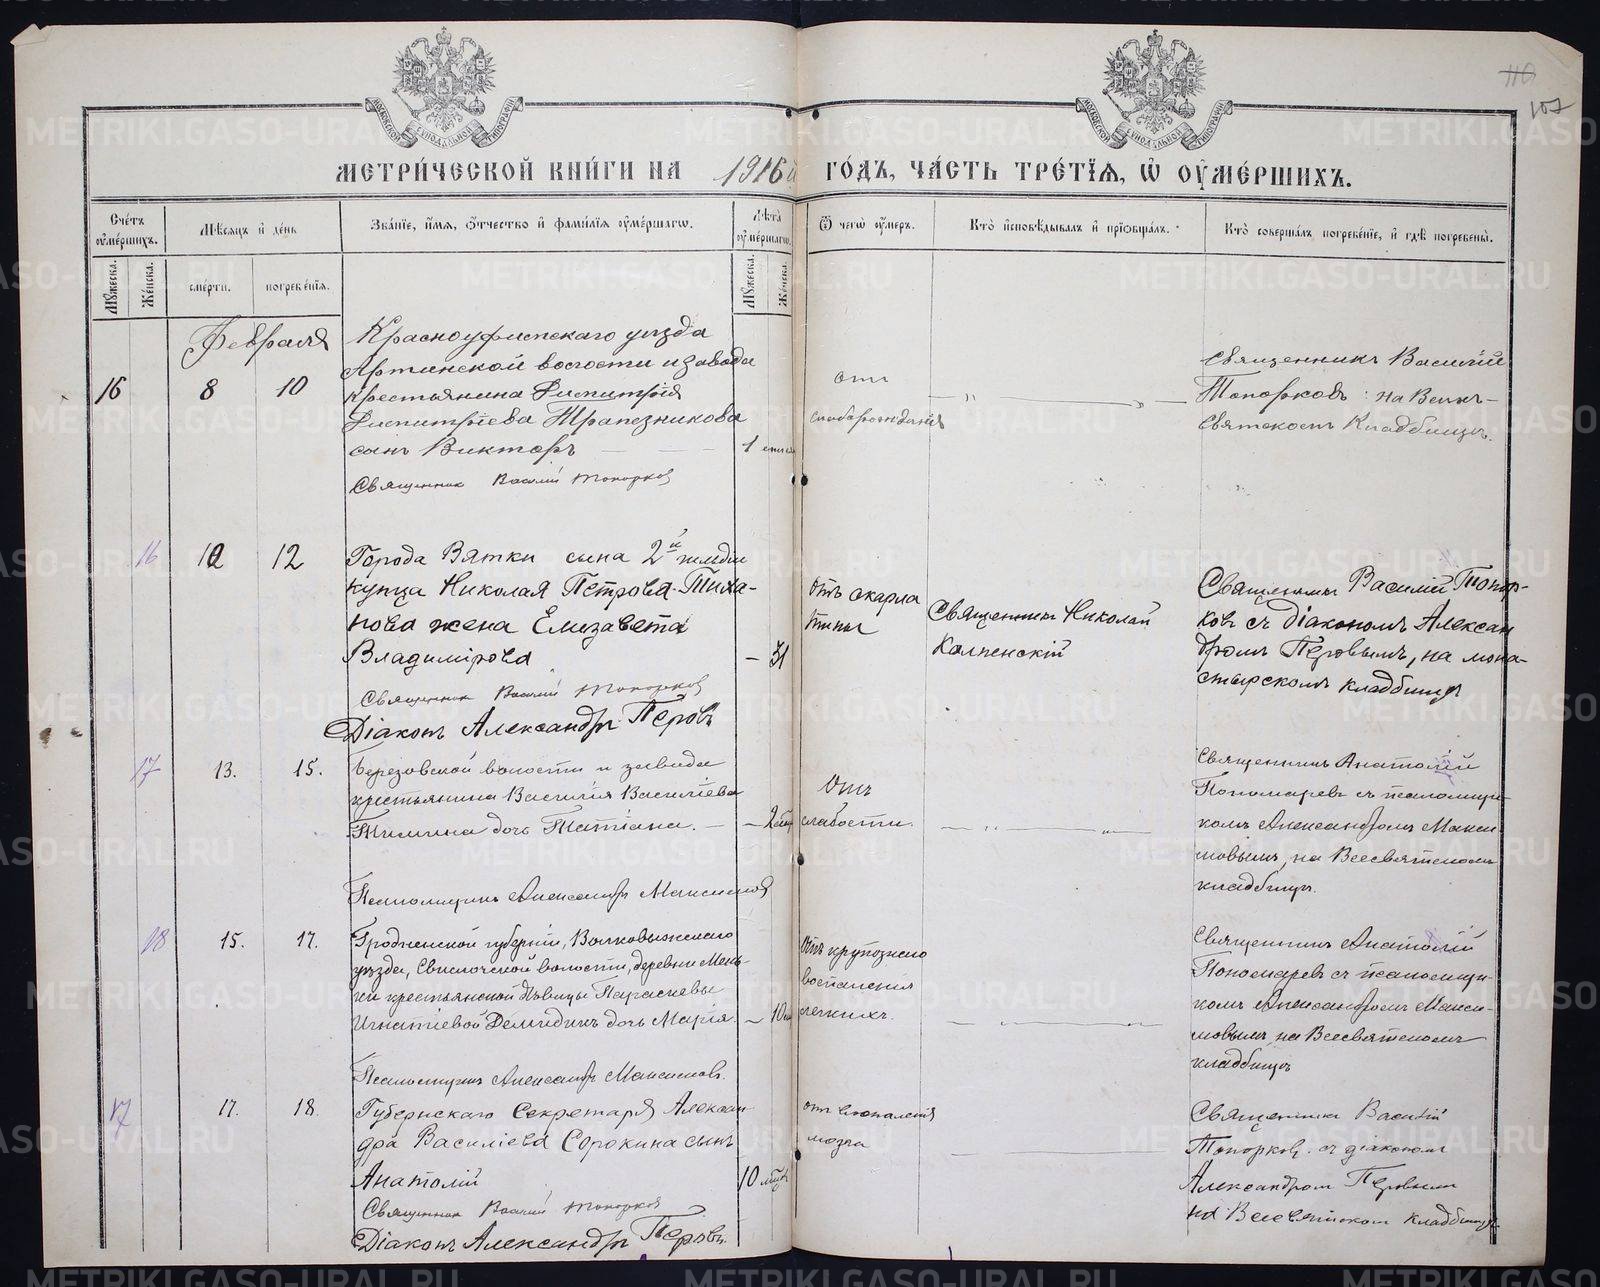 110
107
МОСКОВСКОЙ СѴНОДАЛЬНОЙ ТИПОГРАФІИ
МОСКОВСКОЙ СѴНОДАЛЬНОЙ ТИПОГРАФІИ
МЕТРИ́ЧЕСКОЙ КНИ́ГИ НА 1916й ГО́ДЪ, ЧА́СТЬ ТРЕ́ТЇѦ, Ѡ ОУМЕ́РШИХЪ.
Счетъ оумершихъ.
Мѣсяцъ и день
Званіе, имя, отчество и фамилія оумершагω.
Лѣта оумершагω.
Ѿ чегω оумеръ.
Кто исповѣдывалъ и пріобщалъ.
Кто совершалъ погребеніе, и гдѣ погребены.
Мужеска.
Женска.
смерти.
погребенія.
Мужеска.
Женска.
Февраля
16
8
10
Красноуфимскаго уѣзда
Артинской волости и завода
крестьянина Димитрія
Димитріева Трапезникова
сынъ Викторъ
Священник Василий Топорков
1
отъ
слаборожденія
Священникъ Василій
Топорковъ на Всѣхъ-
Святскомъ Кладбищѣ.
16
10
12
Города Вятки сына 2й гильдіи
купца Николая Петрова Тиха-
нова жена Елизавета
Владимірова
Священник Василий Топорков
Діаконъ Александръ Перовъ
31
Отъ скарла
тины
Священникъ Николай
Священникъ Василій Топор-
ковъ съ діакономъ Алексан
дромъ Перовымъ, на мона-
стырскомъ кладбищѣ
17
13.
15.
Березовской волости и завода
крестьянина Василія Василіева
Тимина дочь Татіана.
Псаломщикъ Александръ Максимов
2
Отъ
слабости.
Священникъ Анатолій
Пономаревъ съ псаломщи-
комъ Александромъ Макси-
мовымъ, на Всесвятскомъ
кладбищѣ.
18
15.
17.
Гродненской губерніи, Волковыскаго
уѣзда, Свислочской волости, деревни
крестьянской дѣвицы Параскевы
Игнатіевой Демидикъ дочь Марія.
Псаломщикъ Александръ Максимовъ.
10
Отъ крупознаго
воспаленія
легкихъ.
Священникъ Анатолій
Пономаревъ съ псаломщи-
комъ Александромъ Макси-
мовымъ, на Всесвятскомъ
кладбищѣ
17
17.
18.
Губернскаго Секретаря Алексан-
дра Василіева Сорокина сынъ
Анатолій
Священник Василий Топорков
Діаконъ Александръ Перовъ.
10 мѣс
отъ воспаленія
мозга
Священникъ Василій
Топорковъ съ діакономъ
Александромъ Перовымъ
на Всесвятском кладбищѣ
METRIKI.GASO-URAL.RU